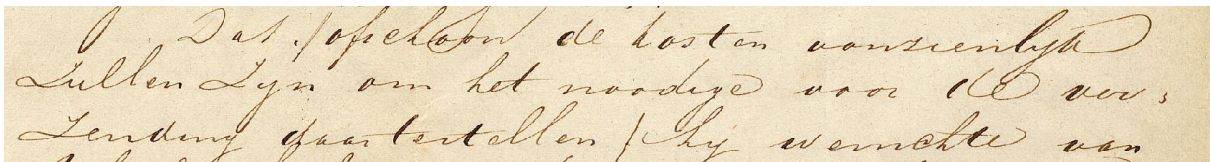 Dat /ofschoon de kosten aanzienlyk
zullen zyn om het noodige voor de ver,
zending daartestellen / hy wenschte van